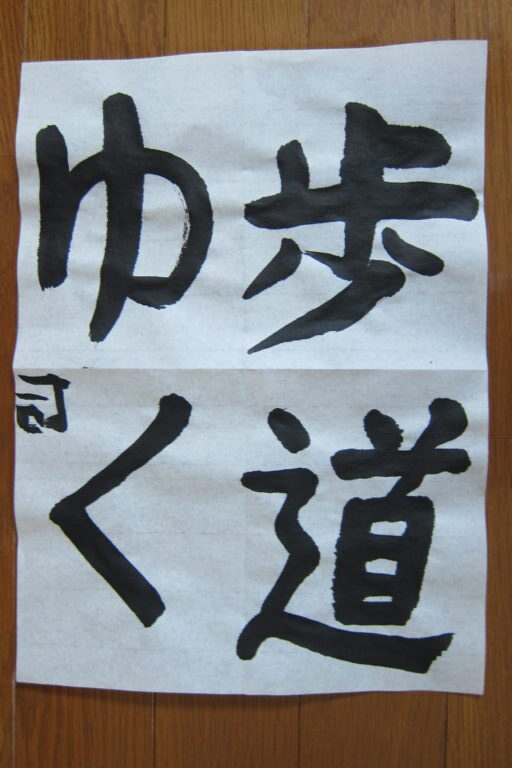 歩道
ゆく
司